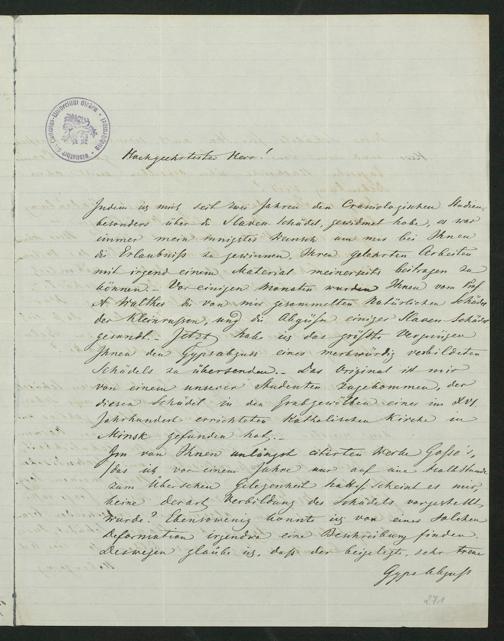 Hochgeehrtester Herr!
Indem ich mich seit zwei Jahren den Craniologischen Studien,
besonders über die Slaven Schädel, gewidmet habe, so war
immer mein innigster Wunsch um mir bei Ihnen
die Erlaubniß zu gewinnen, Ihren gelehrten Arbeiten
mit irgend einem Material meinerseits beitragen zu
können. – Vor einigen Monaten wurden Ihnen vom Prof
A. Walther die von mir gesammelten Natürlichen Schädel
der Kleinrussen, und die Abgüße einiger Slaven Schädel
gesandt. – Jetzt habe ich das größte Vergnügen
Ihnen den Gypsabguss eines merkwürdig verbildeten
Schädels zu übersenden. – Das Original ist mir
von einem unserer Studenten zugekommen, der
diesen Schädel in den Grabgewölben einer im XVI
Jahrhundert errichteten Katholischen Kirche in
Minsk gefunden hat. –
von Ihnen unlängst citirten Werke Gosse's,
das ich vor einem Jahre nur auf eine
zum Gelegenheit hatte, scheint es mir,
keine derart Verbildung des Schädels vorgestellt
wurde? Ebensowenig konnte ich von einer solchen
Deformation irgendwo eine Beschreibung finden.
Deswegen glaube ich, daß der beigelegte, sehr treue
Gyps Abguß
271